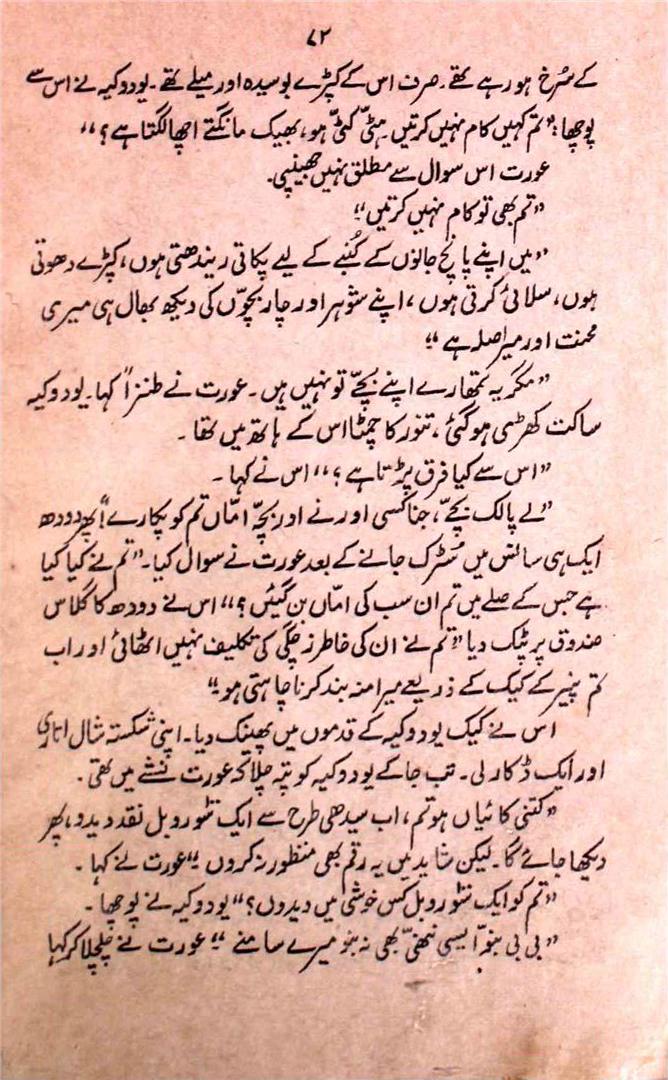 ۷۲
کے سُرخ ہو رہے تھے۔ صرف اس کے کپڑے بوسیدہ اور میلے تھے۔ یودوکیہ نے اس سے
پوچھا: ”تم کہیں کام نہیں کرتیں۔ ہٹّی کٹّی ہو، بھیک مانگتے اچھا لگتا ہے؟“
عورت اس سوال سے مطلق نہیں جھینپی۔
”تم بھی تو کام نہیں کرتیں“
”میں اپنے پانچ جانوں کے کُنبے کے لیے پکاتی ریندھتی ہوں، کپڑے دھوتی
ہوں، سلائی کرتی ہوں، اپنے شوہر اور چار بچّوں کی دیکھ بھال ہی میری
محنت اور میرا صلہ ہے“
”مگر یہ تمھارے اپنے بچّے تو نہیں ہیں۔ عورت نے طنزاً کہا۔ یودوکیہ
ساکت کھڑی ہو گئی، تنور کا چمٹا اس کے ہاتھ میں تھا۔
”اس سے کیا فرق پڑتا ہے؟“ اس نے کہا۔
”لے پالک بچّے، جنا کسی اور نے اور بچّہ امّاں تم کو پکارے!“ پھر دودھ
ایک ہی سانس میں سُڑک جانے کے بعد عورت نے سوال کیا۔ ”تم نے کیا کیا
ہے جس کے صلے میں تم ان سب کی امّاں بن گئیں؟“ اس نے دودھ کا گلاس
صندوق پر ٹپک دیا ”تم نے ان کی خاطر زچگی کی تکلیف نہیں اٹھائی اور اب
تم پنیر کے کیک کے ذریعے میرا منہ بند کرنا چاہتی ہو“
اس نے کیک یودوکیہ کے قدموں میں پھینک دیا۔ اپنی شکستہ شال اتاری
اور ایک ڈکار لی۔ تب جا کے یودوکیہ کو پتہ چلا کہ عورت نشے میں تھی۔
”کتنی کائیاں ہو تم، اب سیدھی طرح سے ایک سَو روبل نقد دیدو، پھر
دیکھا جائے گا۔ لیکن شاید میں یہ رقم بھی منظور نہ کروں“ عورت نے کہا۔
”تم کو ایک سَو روبل کس خوشی میں دیدوں؟“ یودوکیہ نے پوچھا۔
”بی بی بنّو ایسی ننھی بھی نہ بنو میرے سامنے“ عورت نے چلچلا کر کہا